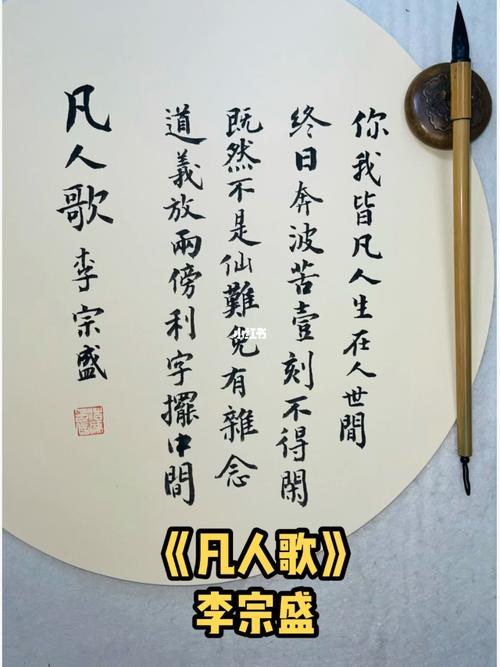 你我皆凡人生在人世間
終日奔波苦壹刻不得閑
既然不是仙難免有雜念
道義放兩傍利字擺中間
凡人歌
李宗盛
小红书
《凡人歌》
李宗盛